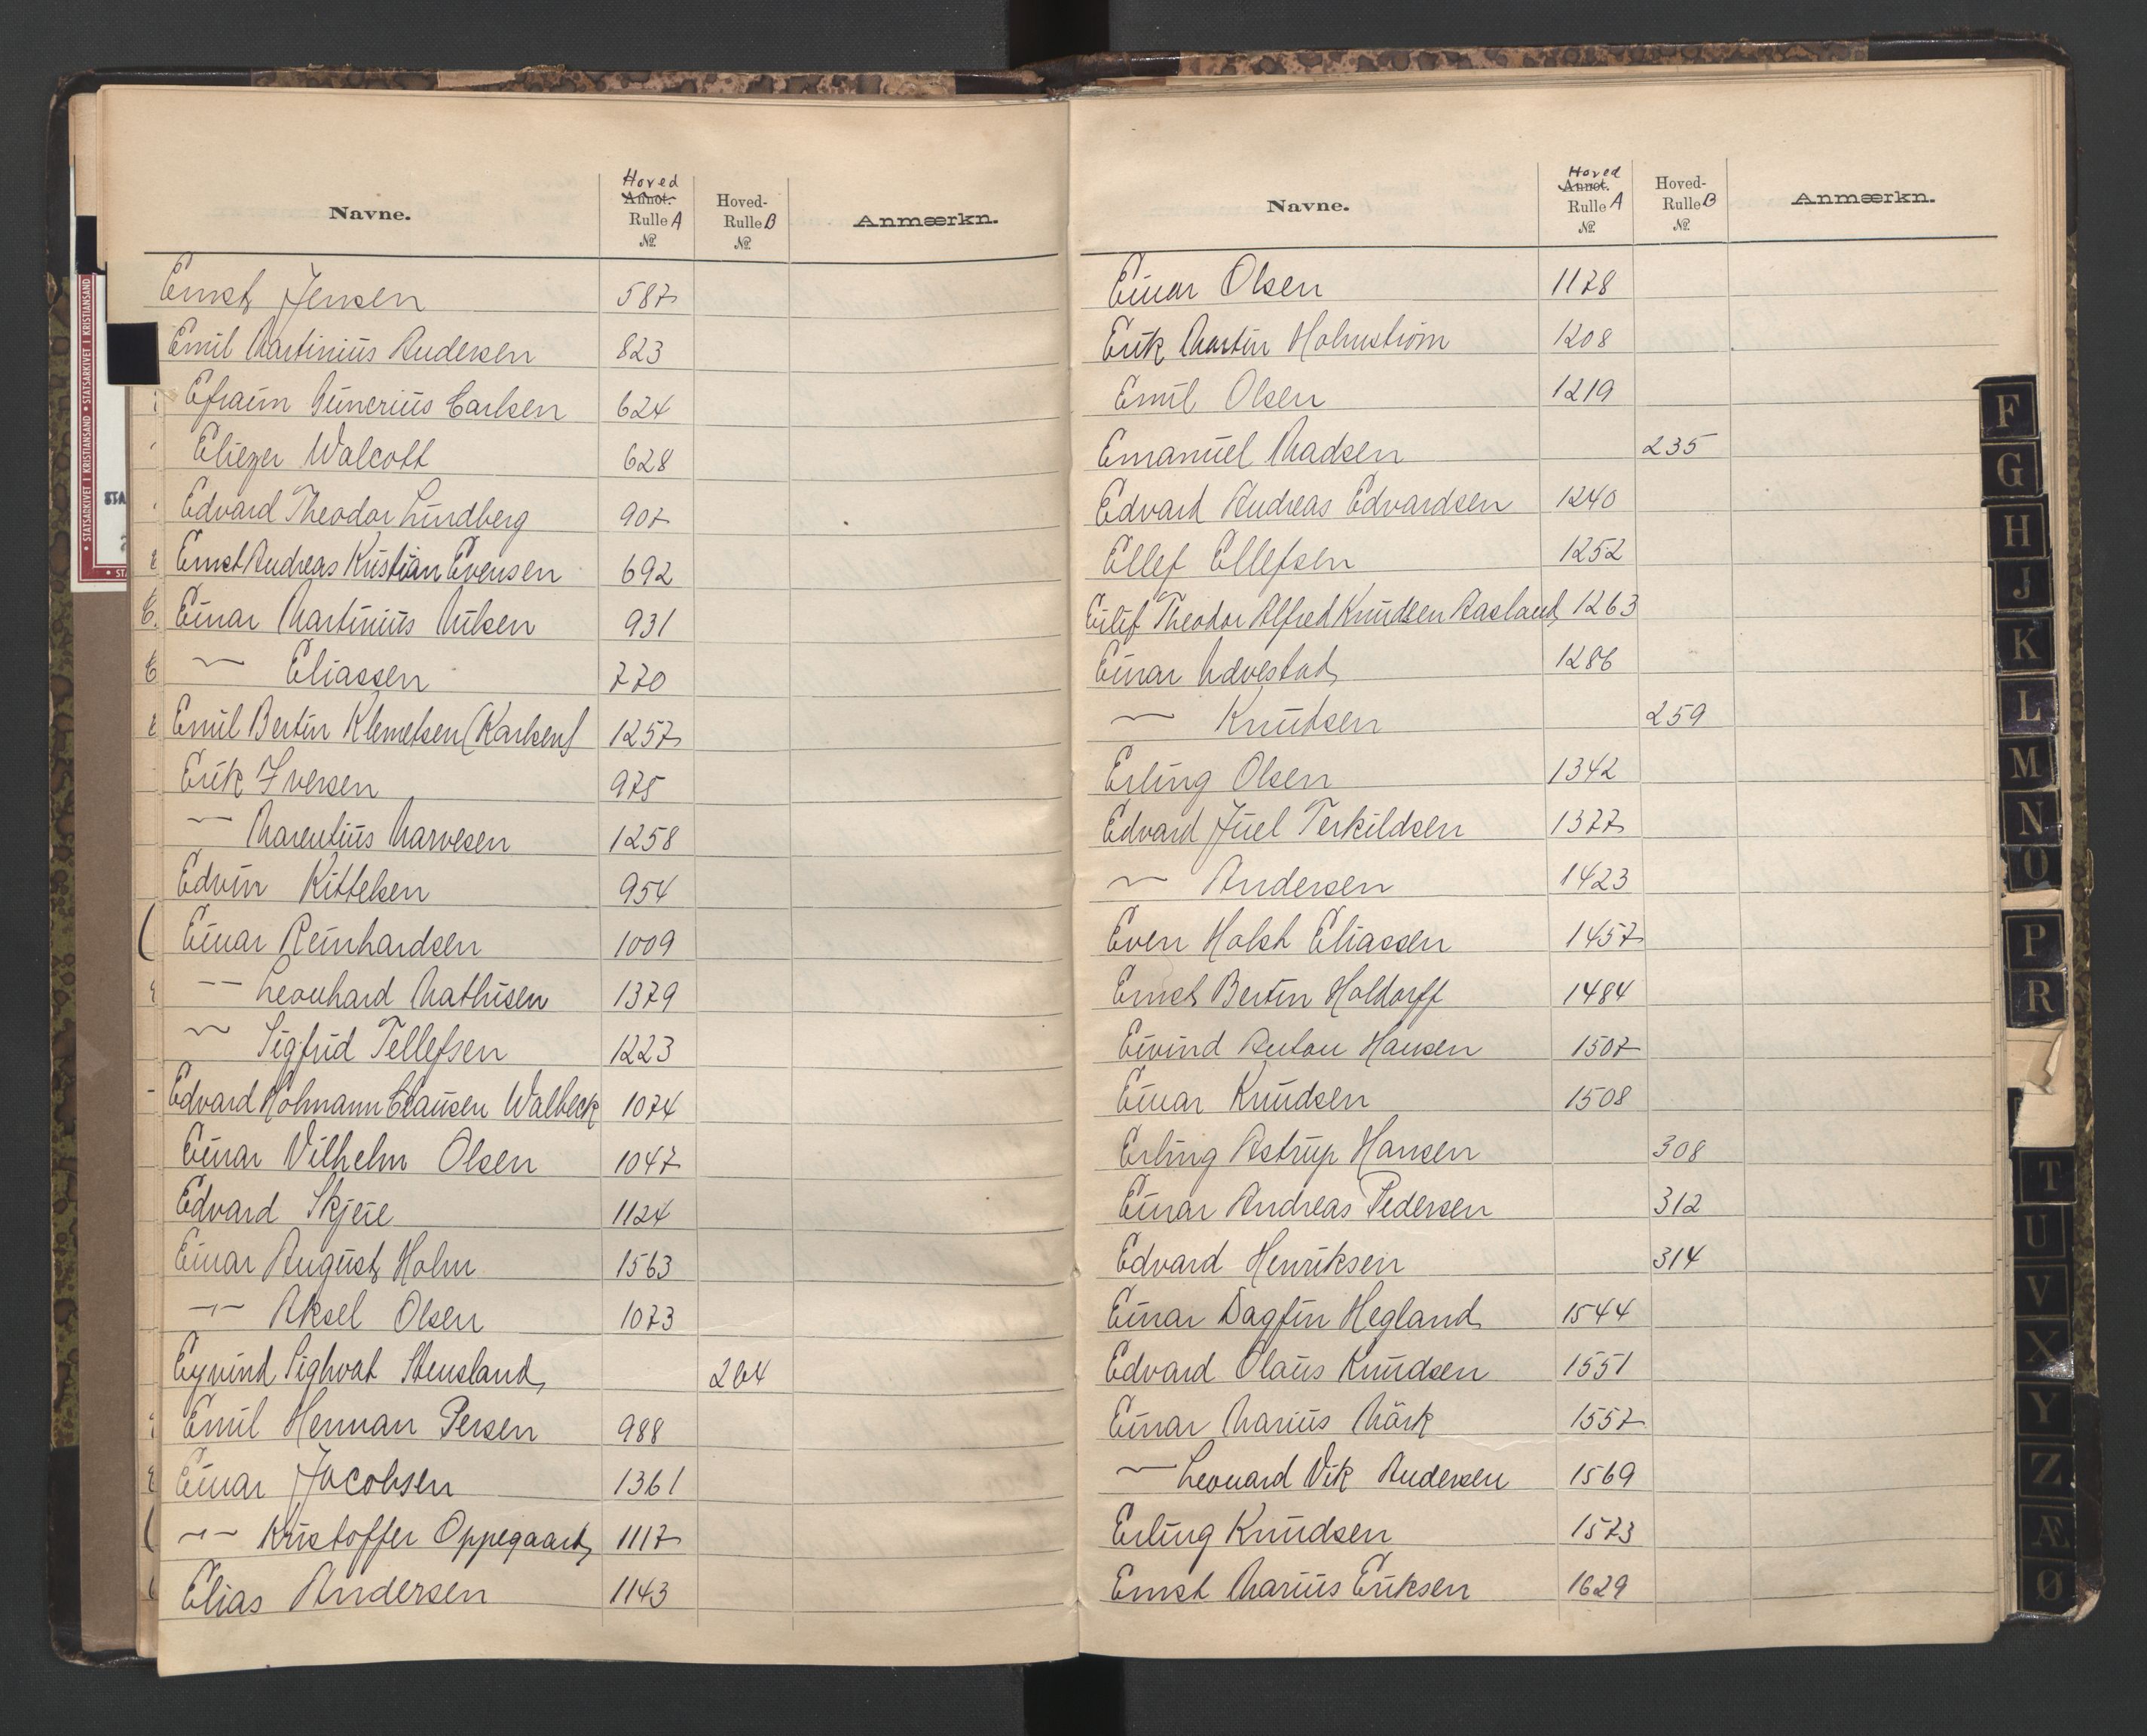 Navne. Hoved Annot. Rulle A № Hoved-Rulle B № Anmærkn.
Ernst Jensen 587
Emil Martinius Andersen 823
Efraim Gunerius Carlsen 624
Eliezer Walcott 628
Edvard Theodor Lindberg 907
Ernst Andreas Kristian Evensen 692
Einar Martinius Nilsen 931
〃 Eliassen 770
Emil Bertin Klemetsen (Karlsen) 1257
Erik Iversen 975
〃 Marentius Marvesen 1258
Edvin Kittelsen 954
Einar Reinhardsen 1009
〃 Leonhard Mathisen 1379
〃 Sigfrid Tellefsen 1223
Edvard Holmann Clausen Walbeck 1074
Einar Vilhelm Olsen 1047
Edvard Skjeie 1124
Einar August Holm 1563
〃 Aksel Olsen 1073
Eyvind Sighvat Stensland 264
Emil Herman Persen 988
Einar Jacobsen 1361
〃 Kristoffer Oppegaard 1117
Elias Andersen 1143
Navne. Hoved Annot. Rulle A № Hoved-Rulle B № Anmærkn.
Einar Olsen 1178
Erik Martin Holmström 1208
Emil Olsen 1219
Emanuel Madsen 235
Edvard Andreas Edvardsen 1240
Ellef Ellefsen 1252
Eilif Theodor Alfred Knudsen Aasland 1263
Einar Udvestad 1286
〃 Knutsen 259
Erling Olsen 1342
Edvard Juel Terkildsen 1377
〃 Andersen 1423
Even Holst Eliassen 1457
Ernst Bertin Holdorff 1484
Eivind Anton Hansen 1507
Einar Knudsen 1508
Erling Astrup Hansen 308
Einar Andreas Pedersen 312
Edvard Henriksen 314
Einar Dagfin Hegland 1544
Edvard Olaus Knudsen 1551
Einar Marius Mörk 1557
〃 Leonard Vik Andersen 1569
Erling Knudsen 1573
Ernst Marius Eriksen 1629
F
G
H
J
K
L
M
N
O
P
R
T
U
V
X
Y
Z
Æ
Ø
STATSARKIVET I KRISTIANSAND • STATSARKIVET I KRISTIANSAND